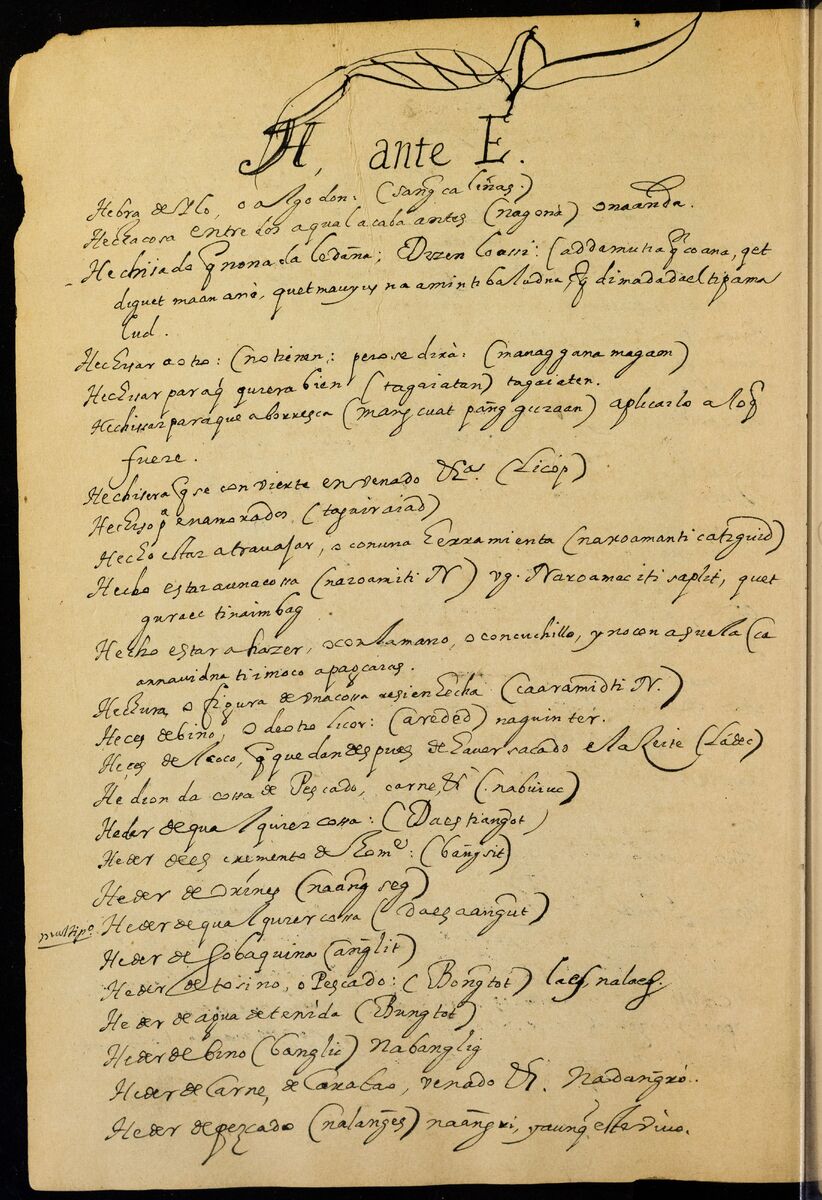 H, ante E.
Hebra de Ylo, o algodon: (sang̃caliñas.)
Hecha cosa entre dos aqual acaba antes (nagona) onaanda.
Hechisado q̃ nona da lodaña; Dizen
diguet maan ana, quet na aminti baludna q̃ dimadadael tipama
lud.
Hechisar a otro: (no tienen: pero se dirà: (managgana magaon)
Hechisar paraq̃ quiera bien (tagaiatan) tagaiaten.
Hechissar paraque aborresca (mang cuat pang̃guraan) aplicarlo a loq̃
fuere.
Hechisera q̃ se convierte en venado &ᵃ. (Licóp)
Hechiso pᵃ enamorados (tagairaiad)
Hecho estar a travajar, o con una herramienta (naroamanti catiguid)
Hecho estar aunacossa (naroamiti N) vg. Naroamaciti saplit, quet
guraec tinaimbag
Hecho estar a hazer, o con la mano, o con cuchillo, y no con asuela (ca
annavidna ti imoco apagcaras.
Hechura o figura de vna cossa resien hecha (caaramidti N.)
Heces de bino, o de otro licor: (areded) naguinter.
Heces de Coco, q̃ quedan despues de haver sacado la leite (Ladec)
Hedionda cossa de Pescado, carne, &ᵃ (nabuiuc)
Heder de qualquier cossa: (Daes tiang̃ot)
Heder de es cremento de home: (bang̃sit)
Heder de orines (naang̃seg)
multipᵒ. Heder de qualquier cossa (daes aang̃ut)
Heder de sobaquina (ang̃lit)
Heder de tosino, o Pescado: (Bong̃tot) laes, nalaes.
Heder de agua detenida (Bung̃tot)
Heder de bino (banglic) Nabanglig
Heder de Carne, de Carabao, venado &ᵃ. Nadang̃ro.
Heder de pezcado (nalang̃es) naang̃ri, y aunq̃ este vivo.